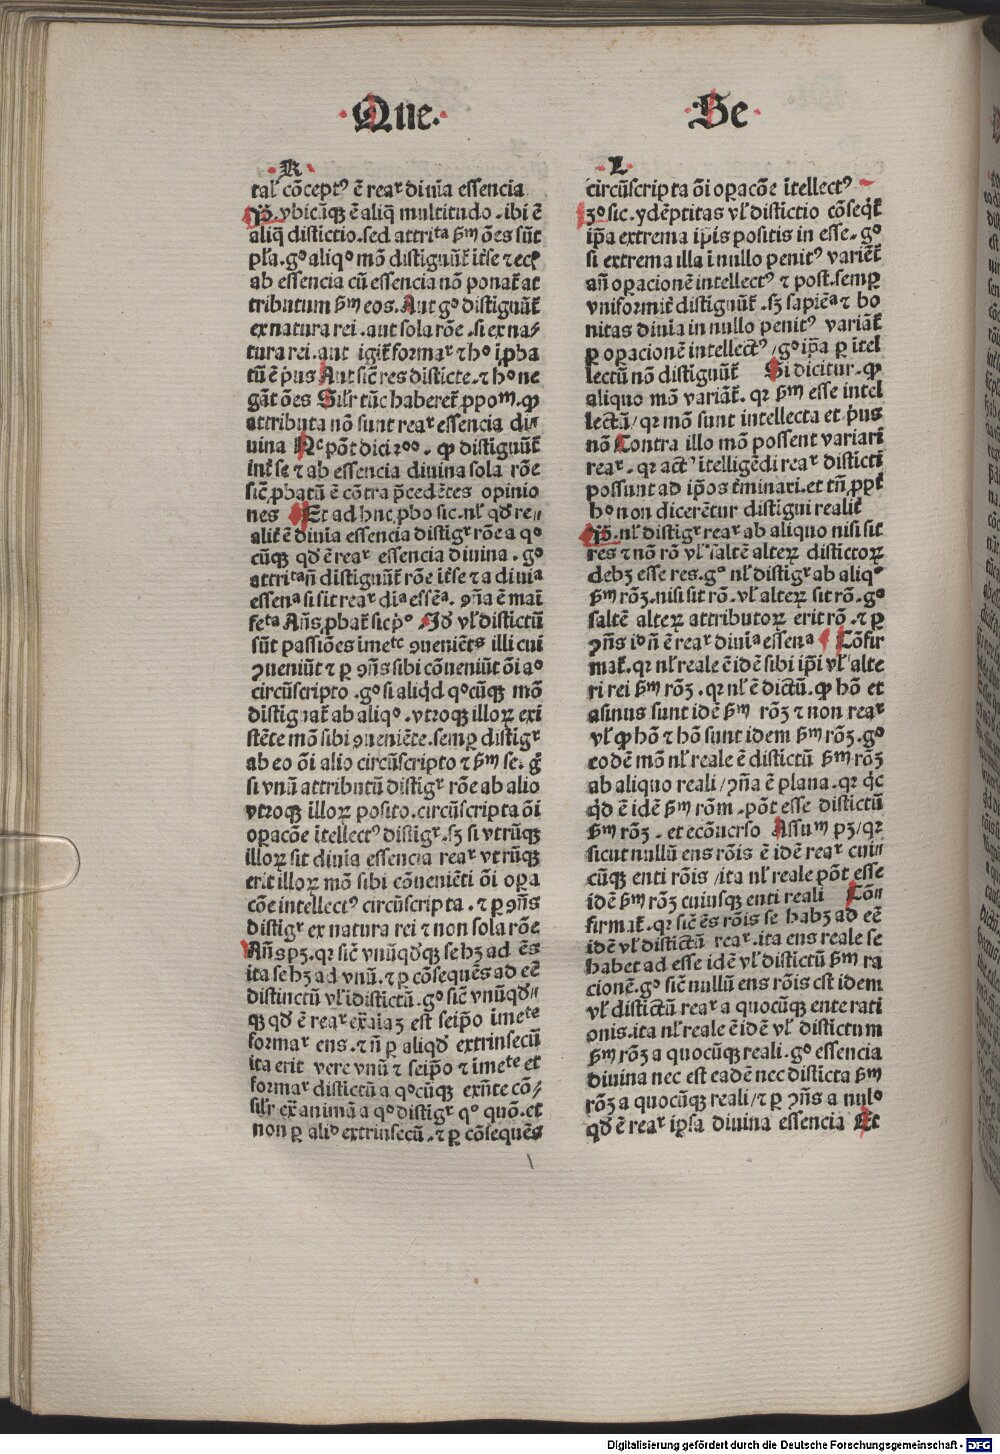 Que.
Se
K
tal᷒ cōceptꝰ ē rearͬ diuīa essencia
Pͦ. vbicūqꝫ ē aliq̄ multitudo. ibi ē
aliq̄ distictio. sed attriᵗᵃ ẜm ōes sūt
pła. gͦ aliqͦ mō distiguūt᷑ īt᷑se ⁊ ecͥ
ab essencia cū essencia nō ponat᷑ at
tributum ẜm eos. Aut gͦ distiguūt᷑
ex natura rei. aut sola rōe. si ex na⸗
tura rei. aut igit᷑ formaͬ ⁊ hͦ īꝓba
tū ē p̄us Aut sic̄ res disticte. ⁊ hͦ ne
gāt ōes Silr̄ tūc haberet᷑ ꝓpoᵐ. ꝙ
attributa nō sunt reaͬ essencia di⸗
uina Nᶜ pōt dici 2ᵒᵒ. ꝙ distiguūt᷑
int᷑ se ⁊ ab essencia diuina sola rōe
sic̄ ꝓbatū ē cōtra p̄cedētes opinio
nes Et ad huc ꝓbo sic. nł qd̄ re⸗
alit᷑ ē diuīa essencia distigͬ rōe a qͦ
cūqꝫ qd̄ ē reaͬ essencia diuina. gͦ
attritañ distiguūt᷑ rōe it᷑se ⁊ a diuīᵃ
essenᵃ si sit reaͬ dīᵃ essēᵃ. ꝯña ē mai
feᵗᵃ Añs ꝓbat᷑ sic pͦ. Id̄ vł distictū
sūt passiōes imeᵗᵉ ꝯueniētˢ illi cui
ꝯueniūt ⁊ ꝑ ꝯñs sibi cōueniūt ōi aͦ
circūscripto. gͦ si aliqͥd qͦcūqꝫ mō
distiguat᷑ ab aliqͦ. vtroqꝫ illoꝝ exi
stēte mō sibi ꝯueniēte. semꝑ distigͬ
ab eo ōi alio circūscripto ⁊ ẜm se. g̊
si vnū attributū distigͬ rōe ab alio
vtroqꝫ illoꝝ posito. circūscripta ōi
oꝑacōe ītellectꝰ distigͬ. sꝫ si vtrūqꝫ
illoꝝ sit diuīa essencia reaͬ vtrūqꝫ
erit illoꝝ mō sibi cōueniēti ōi oꝑa
cōe intellectꝰ circūscripta. ⁊ ꝑ ꝯñs
distigͬ ex natura rei ⁊ non sola rōe
Añs pꝫ. qꝛ sic̄ vnūqd̄qꝫ se hꝫ ad ēs
ita se hꝫ ad vnū. ⁊ ꝑ cōsequēs ad eē
distinctū vł īdistictū. gͦ sic̄ vnūqd̄⸗
qꝫ qd̄ ē reaͬ ex̄aiaꝫ est seip̄o īmeᵗᵉ
formaͬ ens. ⁊ n̄ ꝑ aliqd̄ extrinsecū
ita erit vere vnū ⁊ seip̄o ⁊ īmeᵗᵉ et
formaͬ distictū a qͦcūqꝫ exn̄te cō⸗
silr̄ ex̄ animā a qͦ distigͬ qͦ quō. et
non ꝑ aliᵈ extrinsecū. ⁊ ꝑ cōsequēs
L
circūscripta ōi oꝑacōe ītellectꝰ
3ͦ sic. ydēptitas vł distictio cōseqt᷑
ip̄a extrema ip̄is positis in esse. gͦ
si extrema illa ī nullo penitꝰ variēt᷑
añ oꝑacionē intellectꝰ ⁊ post. semꝑ
vniformit᷑ distiguūt᷑. sꝫ sapiēᵃ ⁊ bo
nitas diuīa in nullo penitꝰ variāt᷑
ꝑ oꝑacionē intellectꝰ / gͦ ip̄a ꝑ ītel
lectū nō distiguūt᷑ Si dicitur. ꝙ
aliquo mō variāt᷑. qꝛ ẜm esse intel
lectū / qꝛ mō sunt intellecta et p̄us
nō Contra illo mō possent variari
reaͬ. qꝛ actꝰ ītelligēdi reaͬ disticti
possunt ad ip̄os t᷑minari. et tū ꝓpt᷑
hͦ non dicerētur distigui realit᷑
Pͦ. nł distigͬ reaͬ ab aliquo nisi sit
res ⁊ nō rō vł saltē alteꝝ distictoꝝ
debꝫ esse res. gͦ nł distigͬ ab aliqͦ
ẜm rōꝫ. nisi sit rō. vł alteꝝ sit rō. gͦ
saltē alteꝝ attributoꝝ erit rō. ⁊ ꝑ
ꝯñs id n̄ ē reaͬ diuīᵃ essenᵃ Cōfir
mat᷑. qꝛ nł reale ē idē sibi ip̄i vł alte
ri rei ẜm rōꝫ. qꝛ nł ē dictū. ꝙ hō et
asinus sunt idē ẜm rōꝫ ⁊ non reaͬ
vł ꝙ hō ⁊ hō sunt idem ẜm rōꝫ. gͦ
eodē mō nł reale ē distictū ẜm rōꝫ
ab aliquo reali / ꝯña ē plana. qꝛ qͥc
qͥd ē idē ẜm rōm. pōt esse distictū
ẜm rōꝫ. et ecōuerso Assumͫ pꝫ / qꝛ
sicut nullū ens rōis ē idē reaͬ cui⸗
cūqꝫ enti rōis / ita nł reale pōt esse
idē ẜm rōꝫ cuiusqꝫ enti reali Cō⸗
firmat᷑. qꝛ sic̄ ēs rōis se habꝫ ad eē
idē vł distictū reaͬ. ita ens reale se
habet ad esse idē vł distictū ẜm ra
cionē. gͦ sic̄ nullū ens rōis est idem
vł distictū reaͬ a quocūqꝫ ente rati
onis. ita nł reale ē idē vł distictum
ẜm rōꝫ a quocūqꝫ reali. gͦ essencia
diuina nec est eadē nec disticta ẜm
rōꝫ a quocūqꝫ reali / ⁊ ꝑ ꝯñs a nulͦ
qd̄ ē reaͬ ip̄sa diuina essencia Et
Digitalisierung gefördert durch die Deutsche Forschungsgemeinschaft - DFG